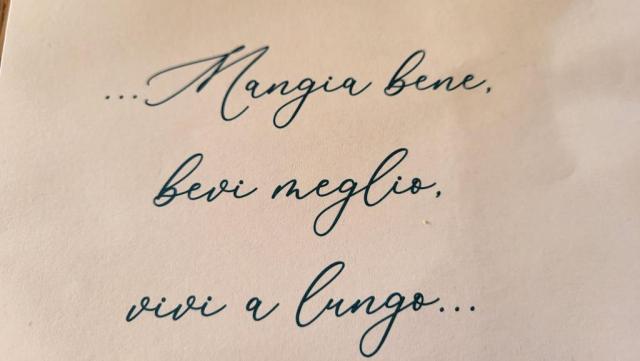 ...Mangia bene,
bevi meglio,
vivi a lungo...